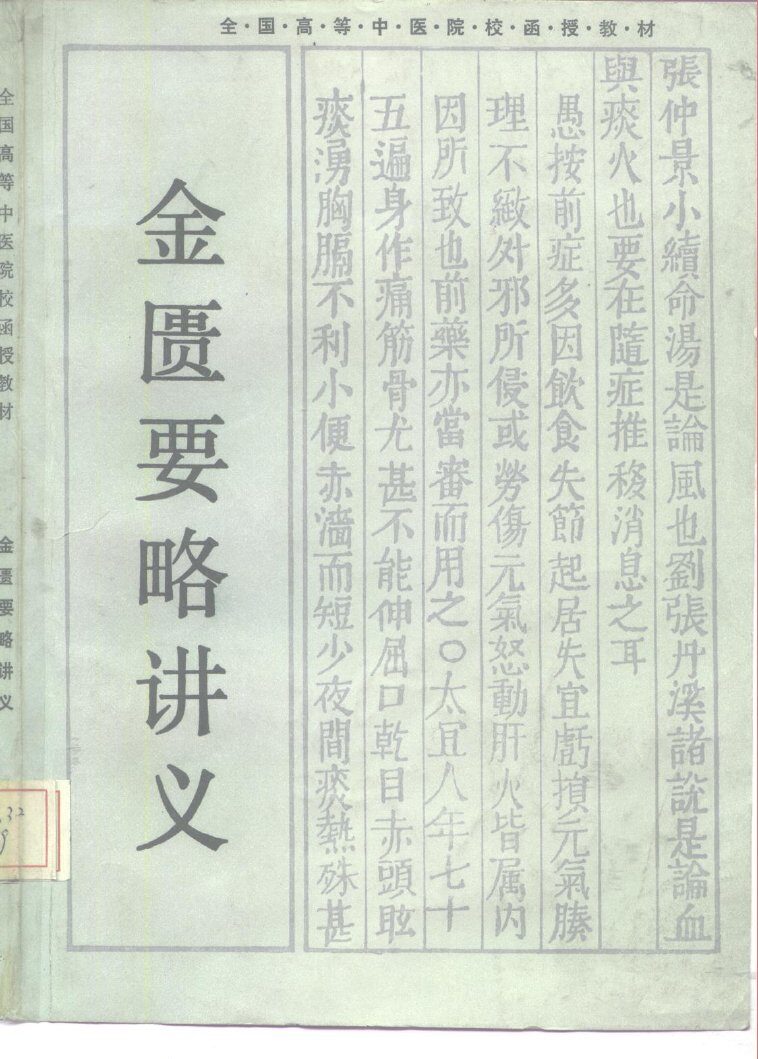 全·国·高·等·中·医·院·校·函·授·教·材
張仲景小續命湯是論風也劉張丹溪諸説是論血
與痰火也要在隨症推移消息之耳
愚按前症多因飲食失節起居失宜虧損元氣腠
理不緻外邪所侵或勞傷元氣怒動肝火皆属内
因所致也前藥亦當審而用之〇太宜人年七十
五遍身作痛筋骨尤甚不能伸屈口乾目赤頭眩
痰湧胸膈不利小便赤濇而短少夜間痰熱殊甚
金匮要略讲义
全国高等中医院校函授教材
金匮要略讲义
.32
9